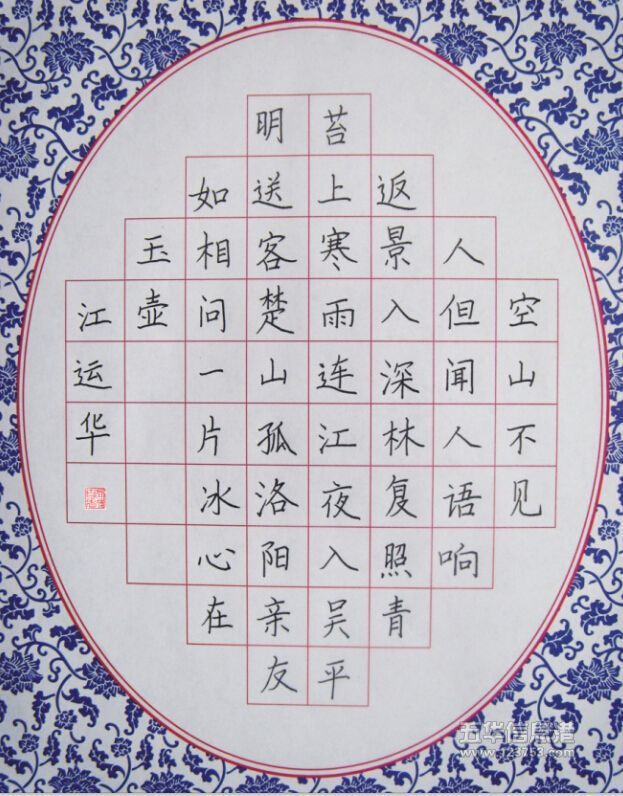 空山不见
人但闻人语响
返景入深林复照青
苔上寒雨连江夜入吴平
明送客楚山孤洛阳亲友
如相问一片冰心在
玉壶
江运华
五华信息港
www.123753.com